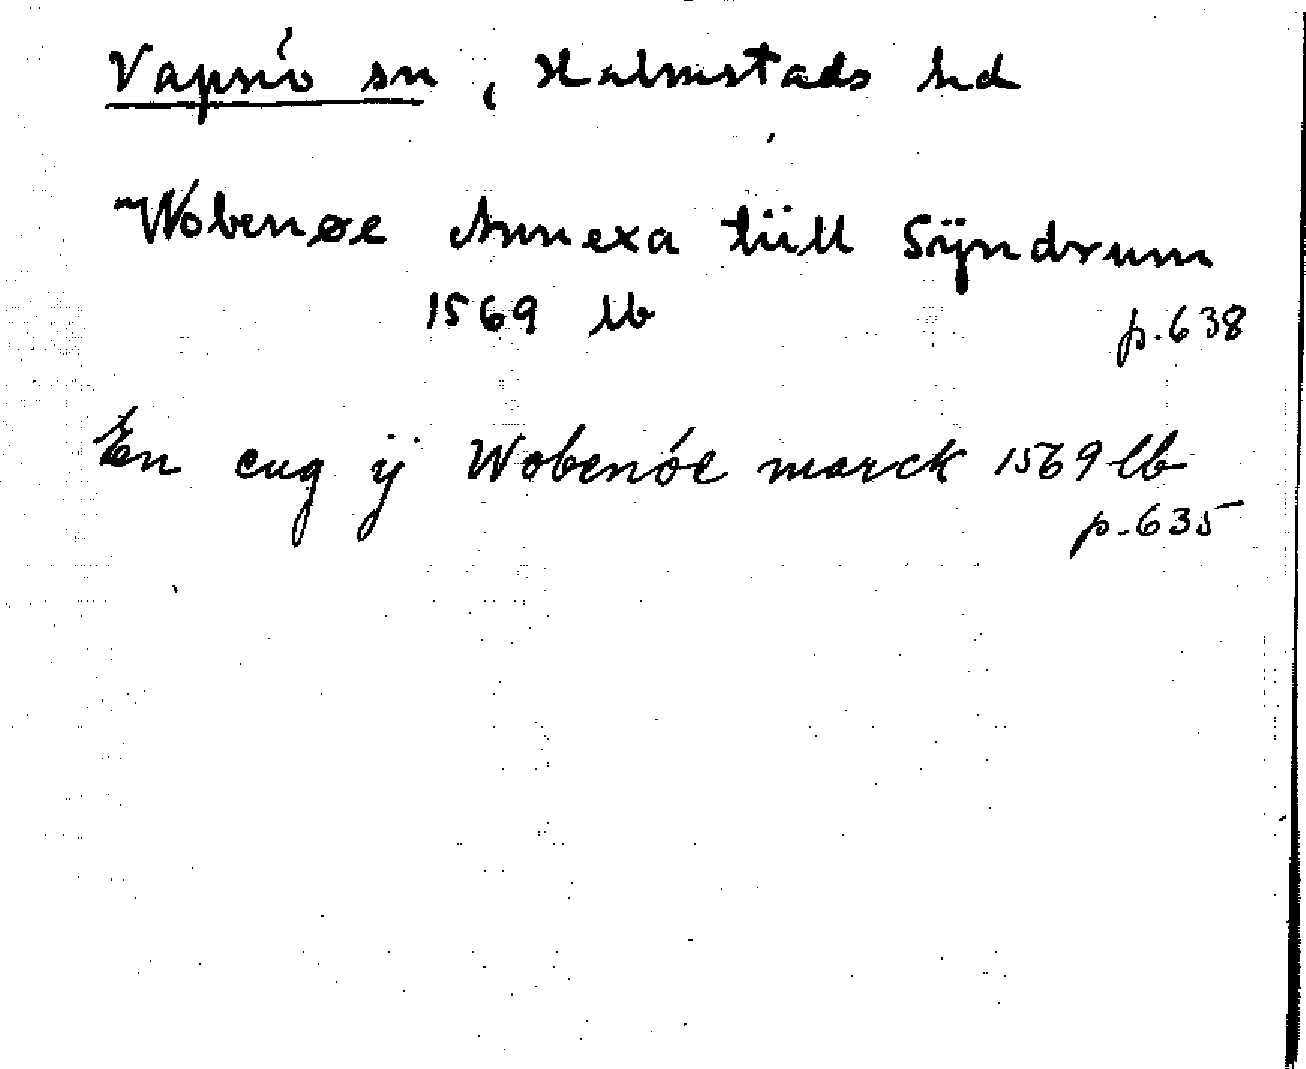 Vapnö sn, Halmstads hd
Wobenøe Annexa tüll Sÿndrum
1569 lb p.638
En eng ÿ Wobenóe marck 1569 lb
p.635